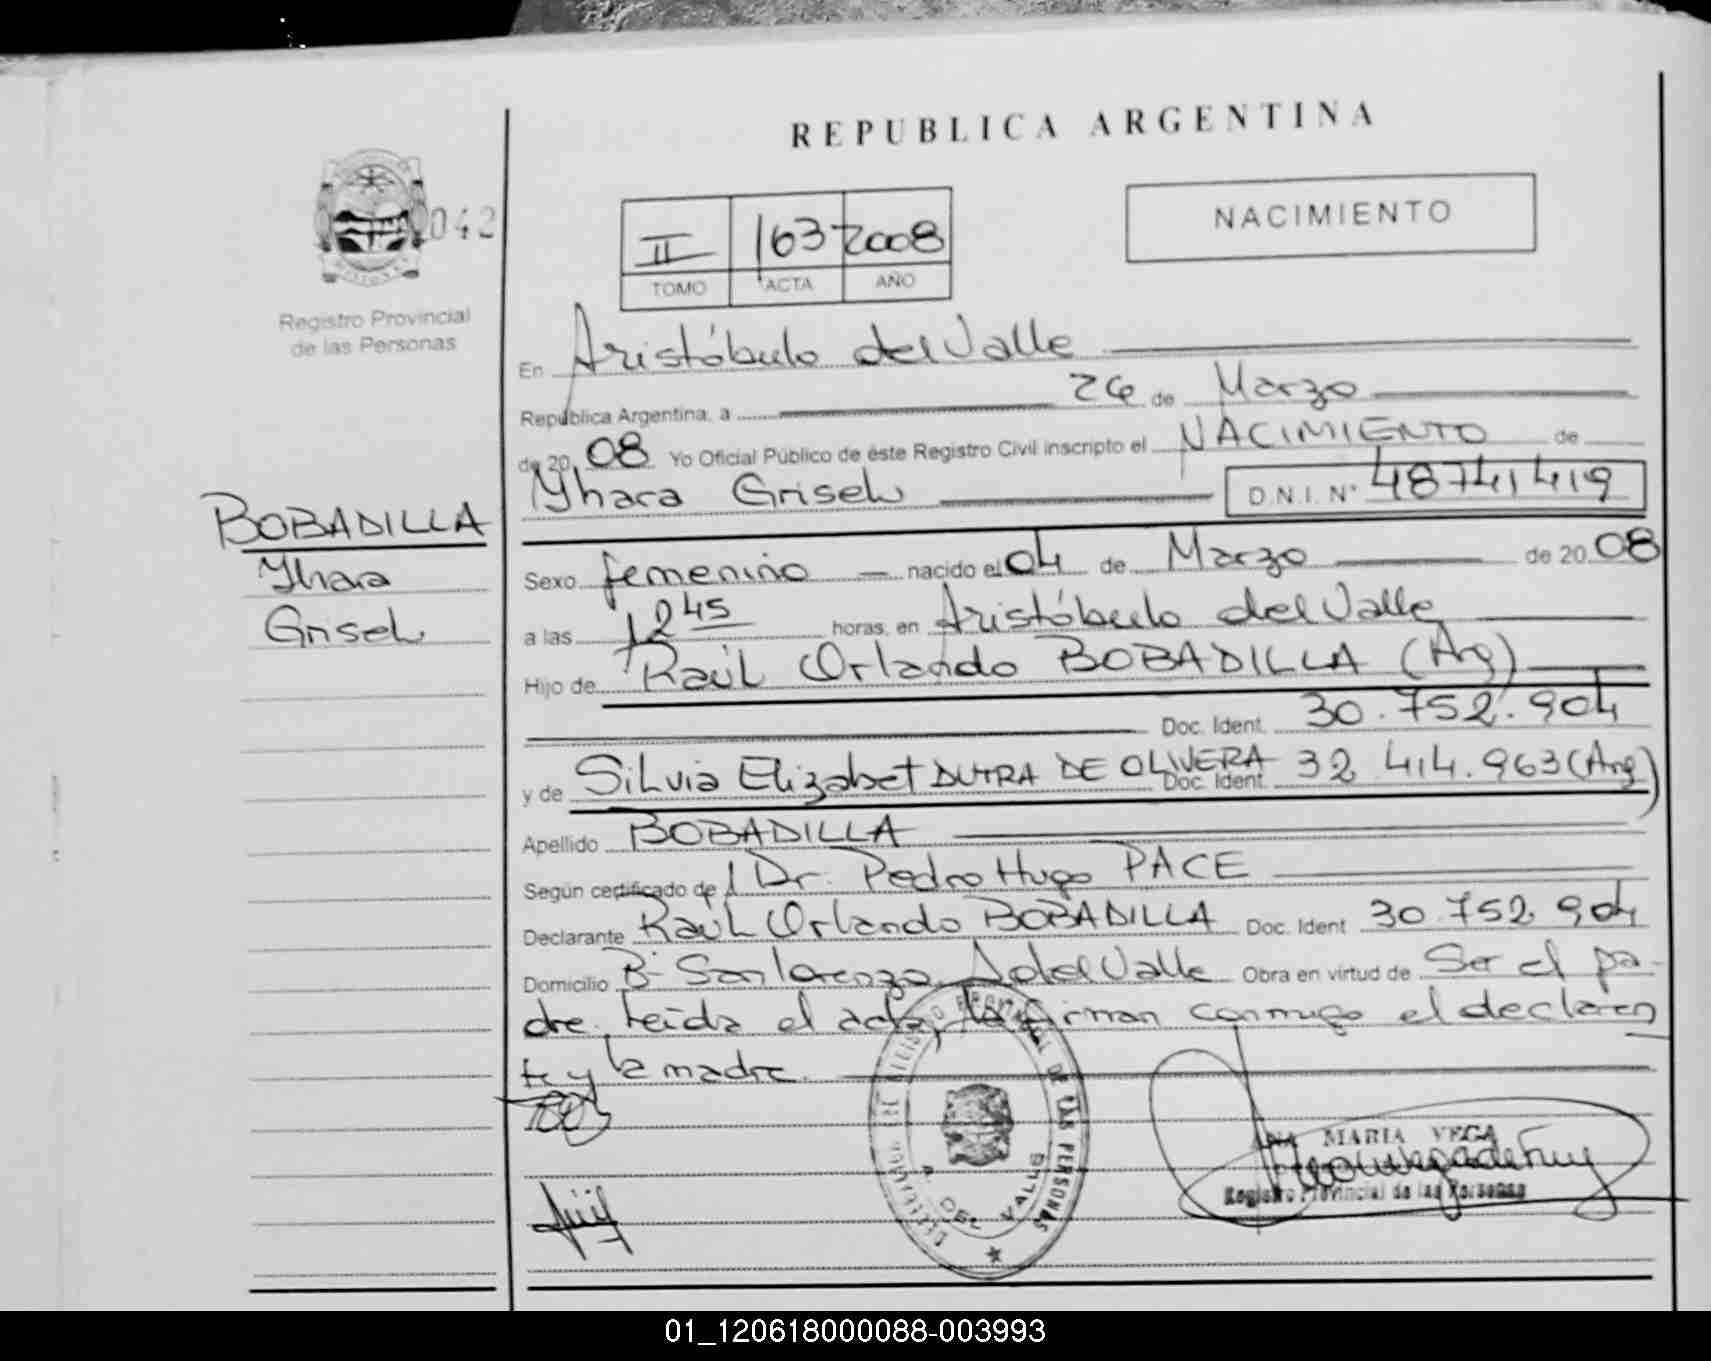 REPUBLICA ARGENTINA
NACIMIENTO
042
II 163 2008
TOMO ACTA AÑO
Registro Provincial
de las Personas
En Aristóbulo del Valle
República Argentina, a 26 de Marzo
de 20 08 Yo Oficial Público de éste Registro Civil inscripto el NACIMIENTO de
Yhara Grisel D.N.I. Nº 48741419
BOBADILLA
Yhara
Grisel
Sexo femenino nacido el 04 de Marzo de 20 08
a las 12 45 horas, en Aristóbulo del Valle
Hijo de Raúl Orlando BOBADILLA (Arg)
Doc. Ident. 30.752.904
y de Silvia Elizabet DUTRA DE OLIVERA Doc. Ident. 32 414.963 (Arg)
Apellido BOBADILLA
Según certificado de Dr. Pedro Hugo PACE
Declarante Raúl Orlando BOBADILLA Doc. Ident 30.752 904
Domicilio Bº San Lorenzo, A del Valle Obra en virtud de Ser el pa-
dre. Leída el acta, la firman conmigo el declaran
te y la madre.
REGISTRO PROVINCIAL DE LAS PERSONAS
A. DEL VALLE
ANA MARIA VEGA
Registro Provincial de las Personas
01_120618000088-003993